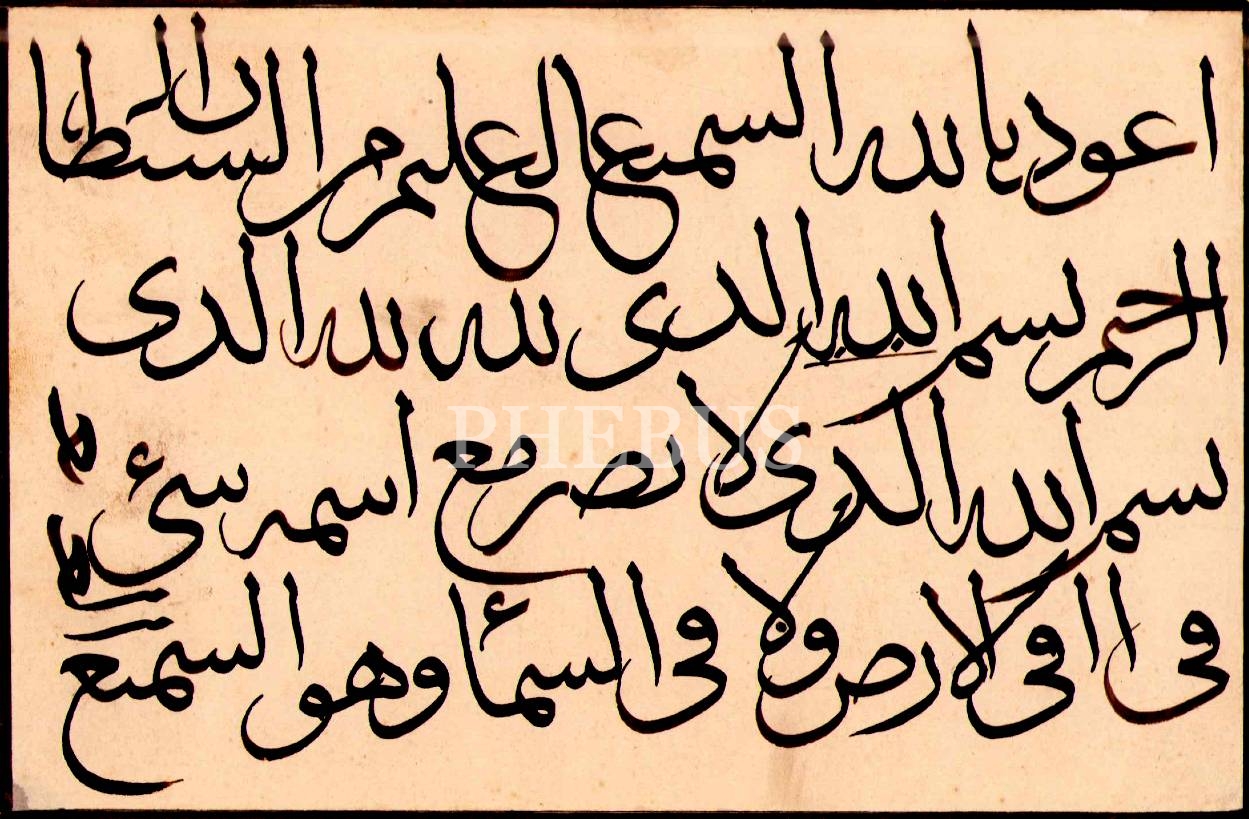 اعوذ بالله السميع العليم من الشيطان
الرجيم بسم الله الذى لله لله الذى
بسم الله الذى لا يضر مع اسمه شىء
فى ا فى الارض ولا فى السماء وهو السميع
PHEBUS